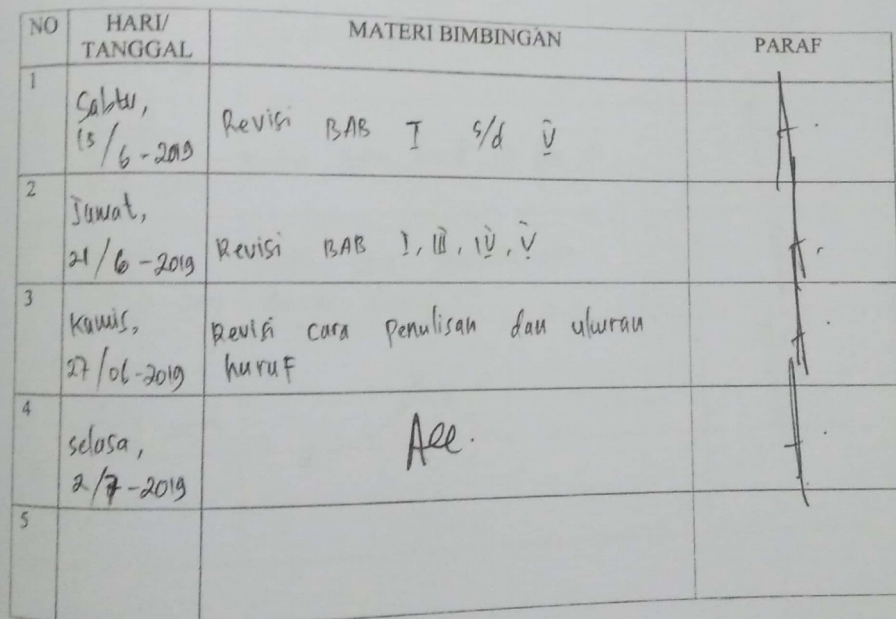 NO HARI/ TANGGAL MATERI BIMBINGAN PARAF
1
Sabtu,
15/6-2019
Revisi BAB I s/d V
2
Jumat,
21/6-2019
Revisi BAB I, III, IV, V
3
Kamis,
27/06-2019
Revisi cara penulisan dan ukuran
huruf
4
selasa,
2/7-2019
Acc.
5